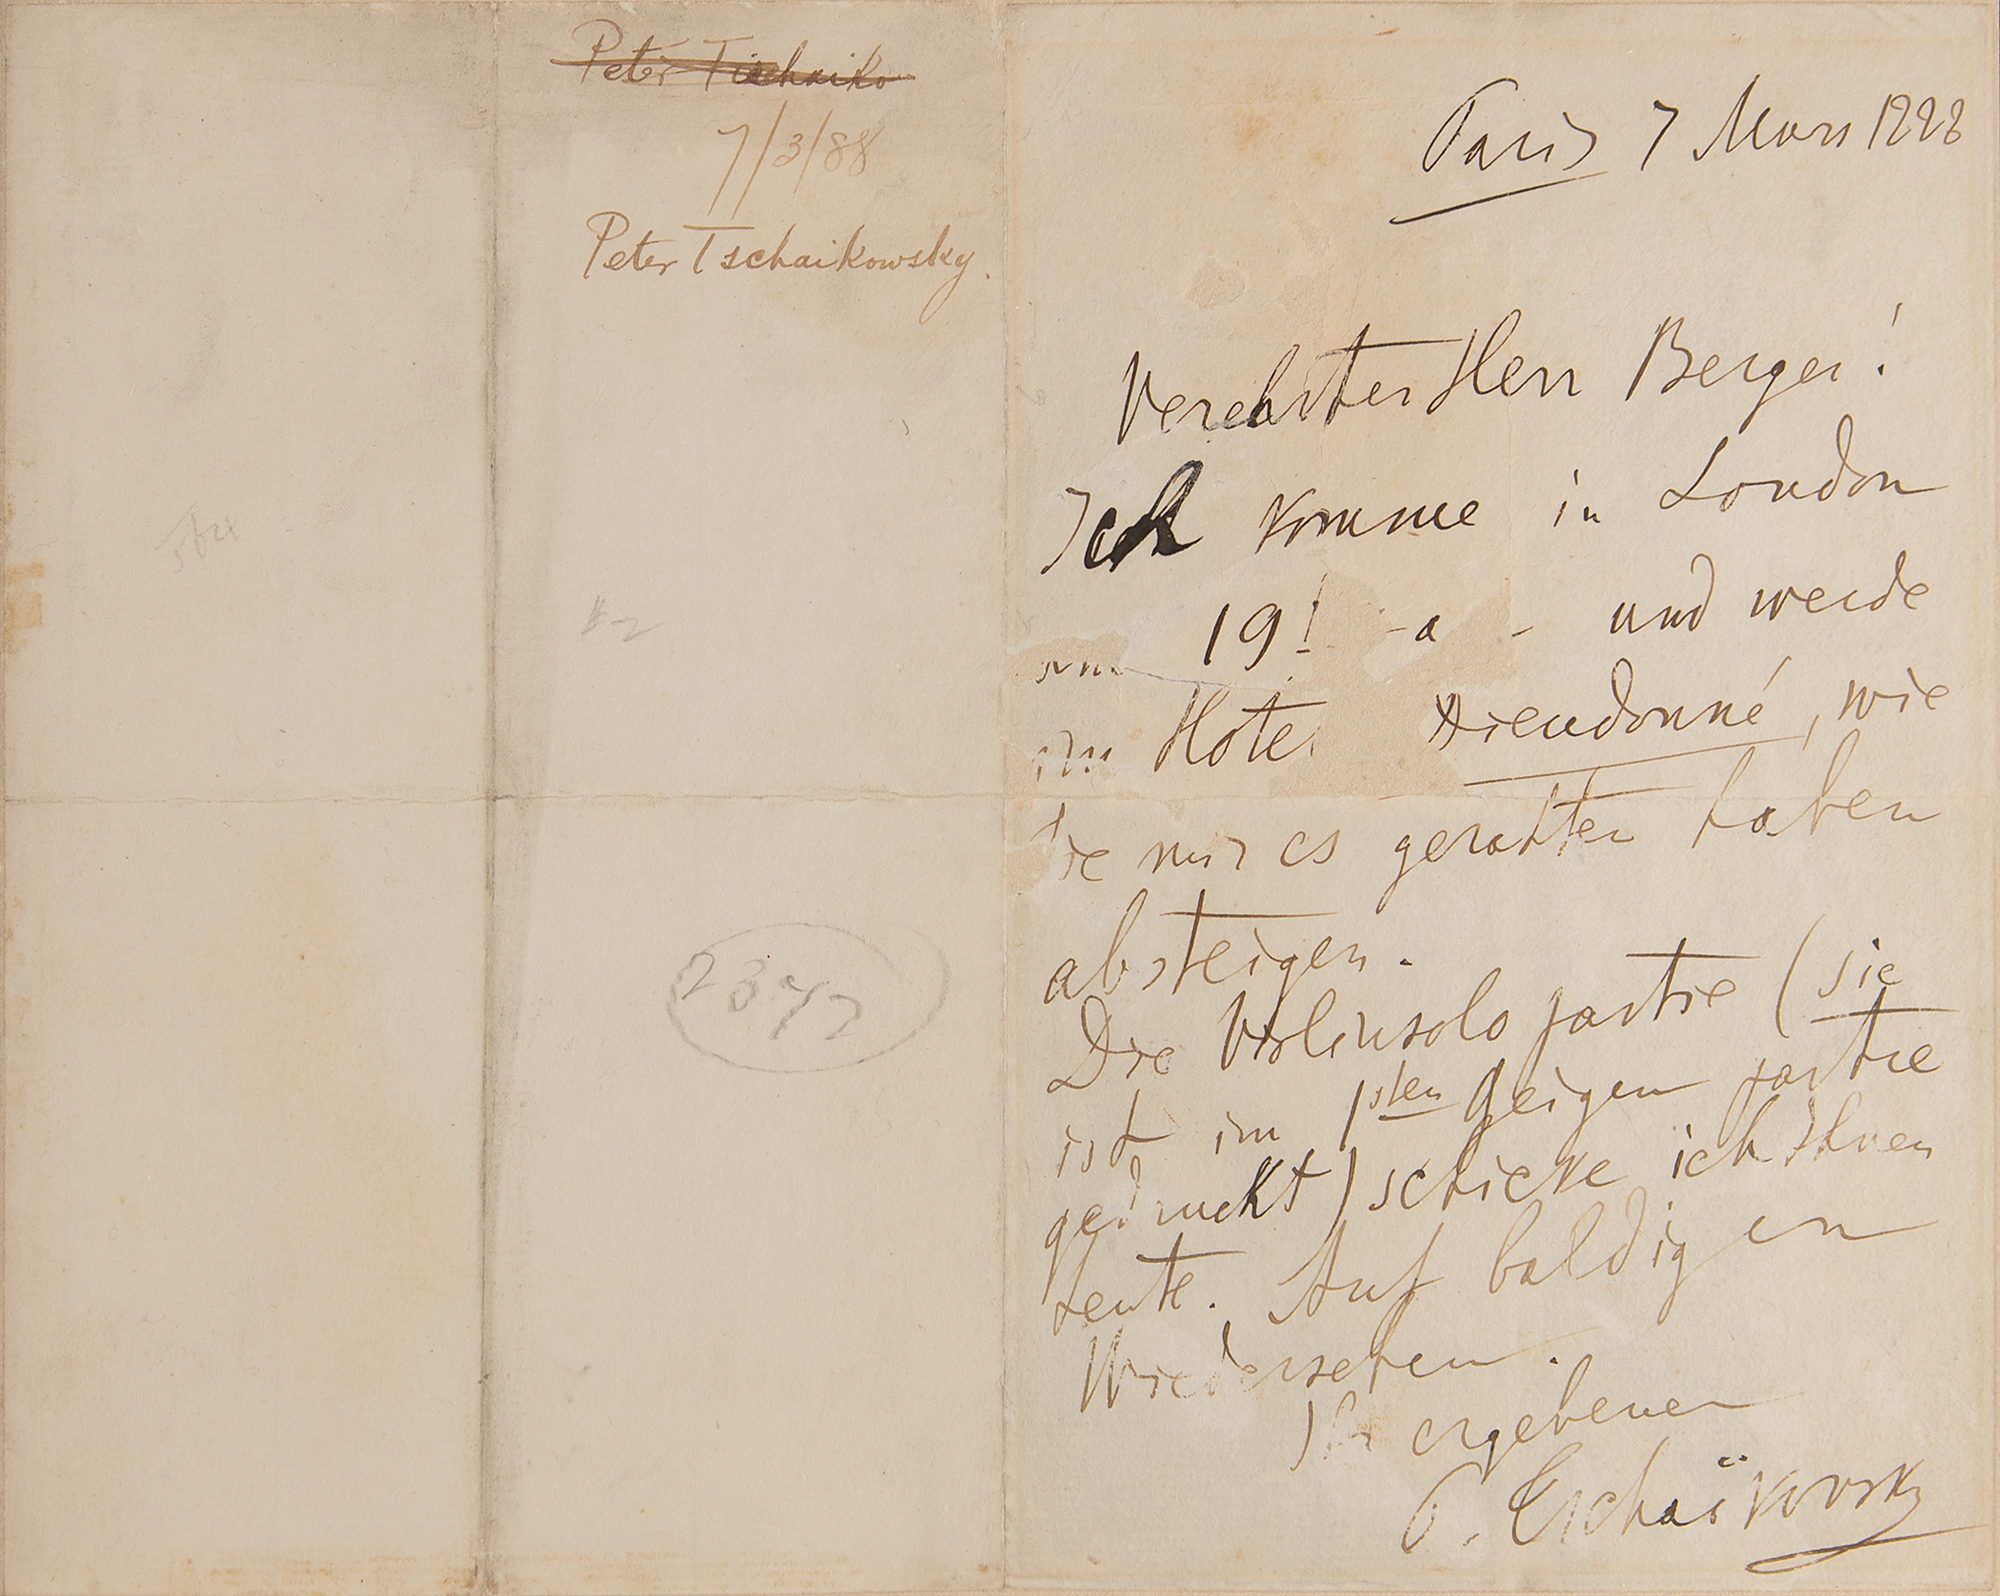 Peter Tschaiko
7/3/88
Peter Tschaikowsky.
2372
Paris 7 Mars 1888
Verehrter Herr Berger!
Ich komme in London
19! und werde
im Hotel Dieudonné, wie
Sie mir es geratten haben
absteigen.
Die Violinsolo partie (sie
ist im 1sten Geigen partie
gedruckt) schicke ich Ihnen
heute. Auf baldigen
Wiedersehen.
Ihr ergebener
P. Tschaïkovsky